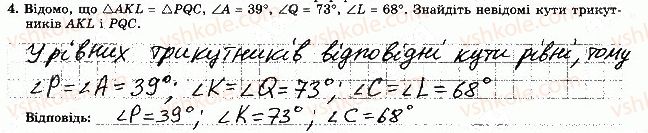 4. Відомо, що △AKL = △PQC, ∠A = 39°, ∠Q = 73°, ∠L = 68°. Знайдіть невідомі кути трикут-
ників AKL і PQC.
У рівних трикутників відповідні кути рівні, тому
∠P=∠A=39°; ∠K=∠Q=73°; ∠C=∠L=68°
Відповідь: ∠P=39°; ∠K=73°; ∠C=68°